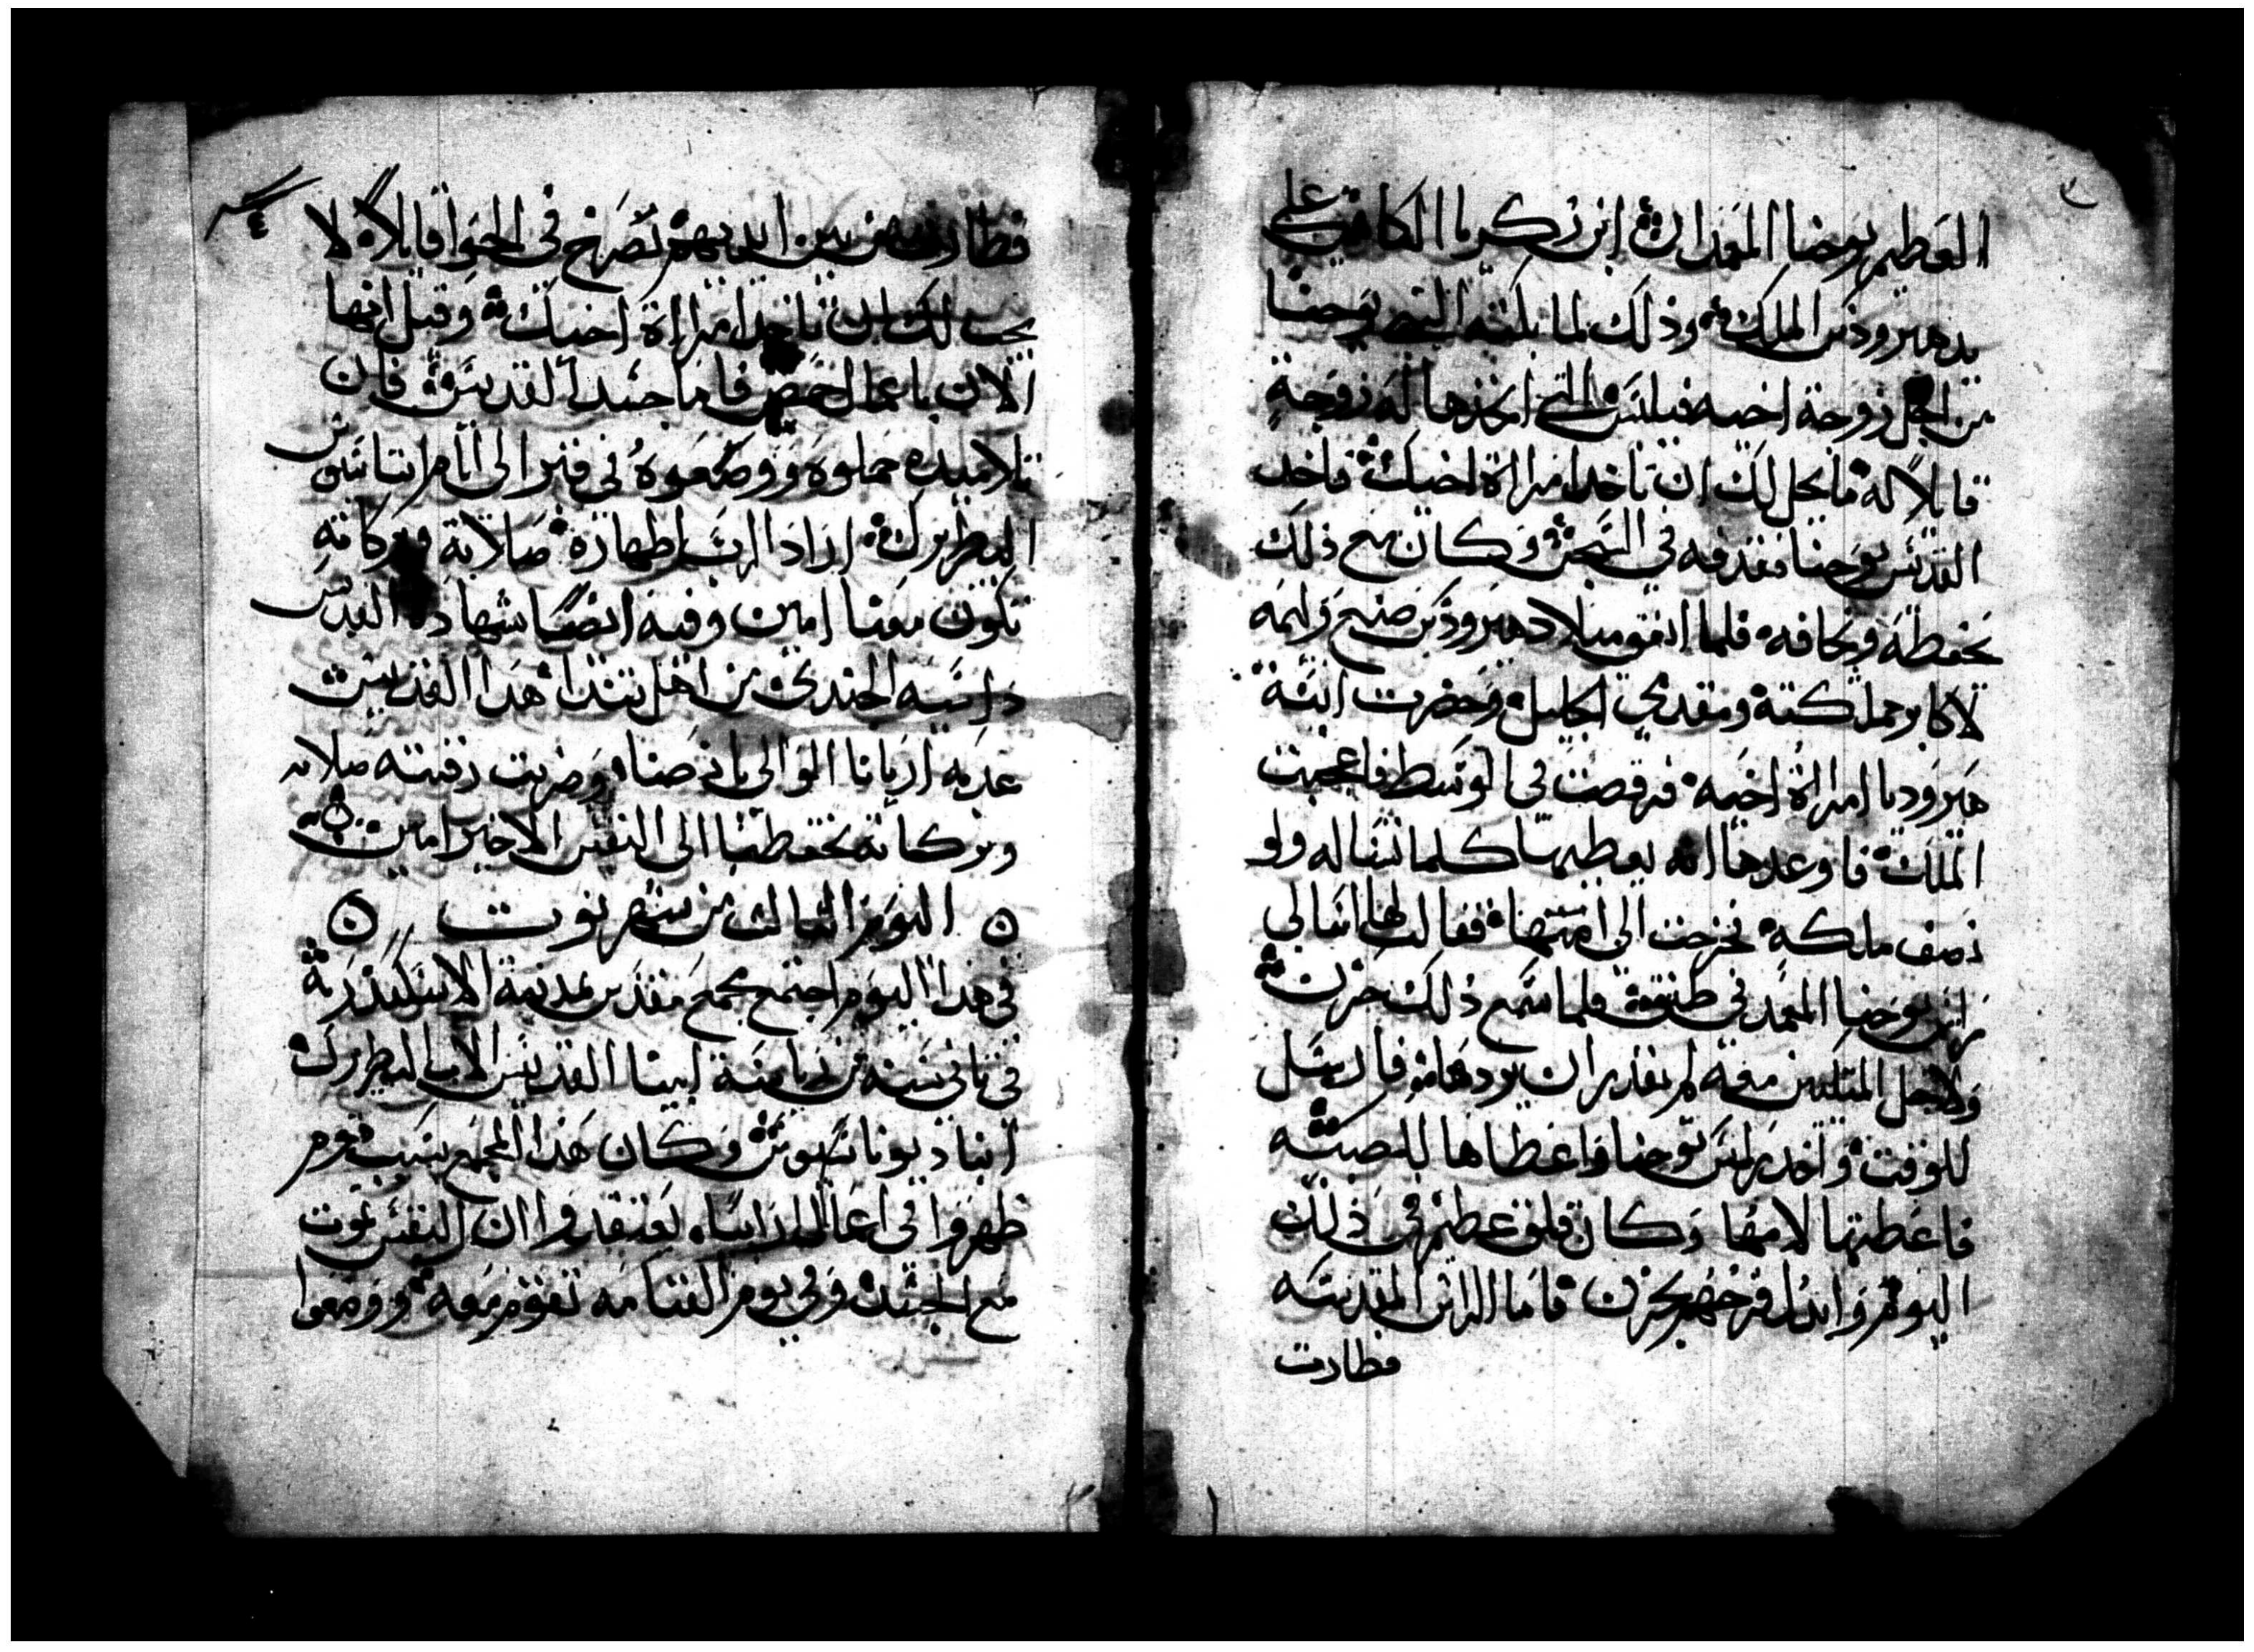 العظيم يوحنا المعمدان ابن زكريا الكاهن على
يد هيرودس الملك وذلك لما بكته القديس يوحنا
من اجل زوجة اخيه فيلبس التي اتخذها له زوجة
قايلا له ما يحل لك ان تاخد امراة اخيك فاخد
القديس يوحنا فقذفه في السجن وكان مع ذلك
يحفظه ويخافه فلما اتفق ميلاد هيرودس صنع وليمه
لاكابر مملكته ومقدمي الجليل وحضرت ابنة
هيروديا امراة اخيه فرقصت في الوسط فاعجبت
الملك فاوعدها انه يعطيها كلما تساله ولو
نصف ملكه فخرجت الى امها فقالت لها اسالي
راس يوحنا المعمد في طبق فلما سمع ذلك حزن
ولاجل المتكيين معه لم يقدر ان يردها فارسل
للوقت واخد راس يوحنا واعطاها للصبيه
فاعطتها لامها وكان قلق عظيم في ذلك
اليوم وابدل فرحهم بحزن فاما الراس المقدسه
فطارت
فطارت من بين ايديهم تصرخ في الجو قايلاه لا
يحل لك ان تاخد امراة اخيك وقيل انها
الان باعمال حمص فاما جسد القديس فان
تلاميده حملوه ووضعوه في قبر الى ايام اتناسيوس
البطريرك اراد الرب اظهاره صلاته وبركاته
تكون معنا امين وفيه ايضا شهادة القديس
داسيه الجندي من اهل تندا هدا القديس
عدبه اريانا الوالي بانصنا وضربت رقبته صلاته
وبركاته تحفظنا الى النفس الاخير امين
اليوم الثالث من شهر توت
في هدا اليوم اجتمع مجمع مقدس بمدينة الاسكندرية
في تاني سنه من رياسة ابينا القديس الاب البطريرك
انبا ديوناسيوس وكان هذا المجمع بسبب قوم
ظهروا في اعمال ارابيا يعتقدوا ان النفس تموت
مع الجسد وفي يوم القيامه تقوم معه ووضعوا